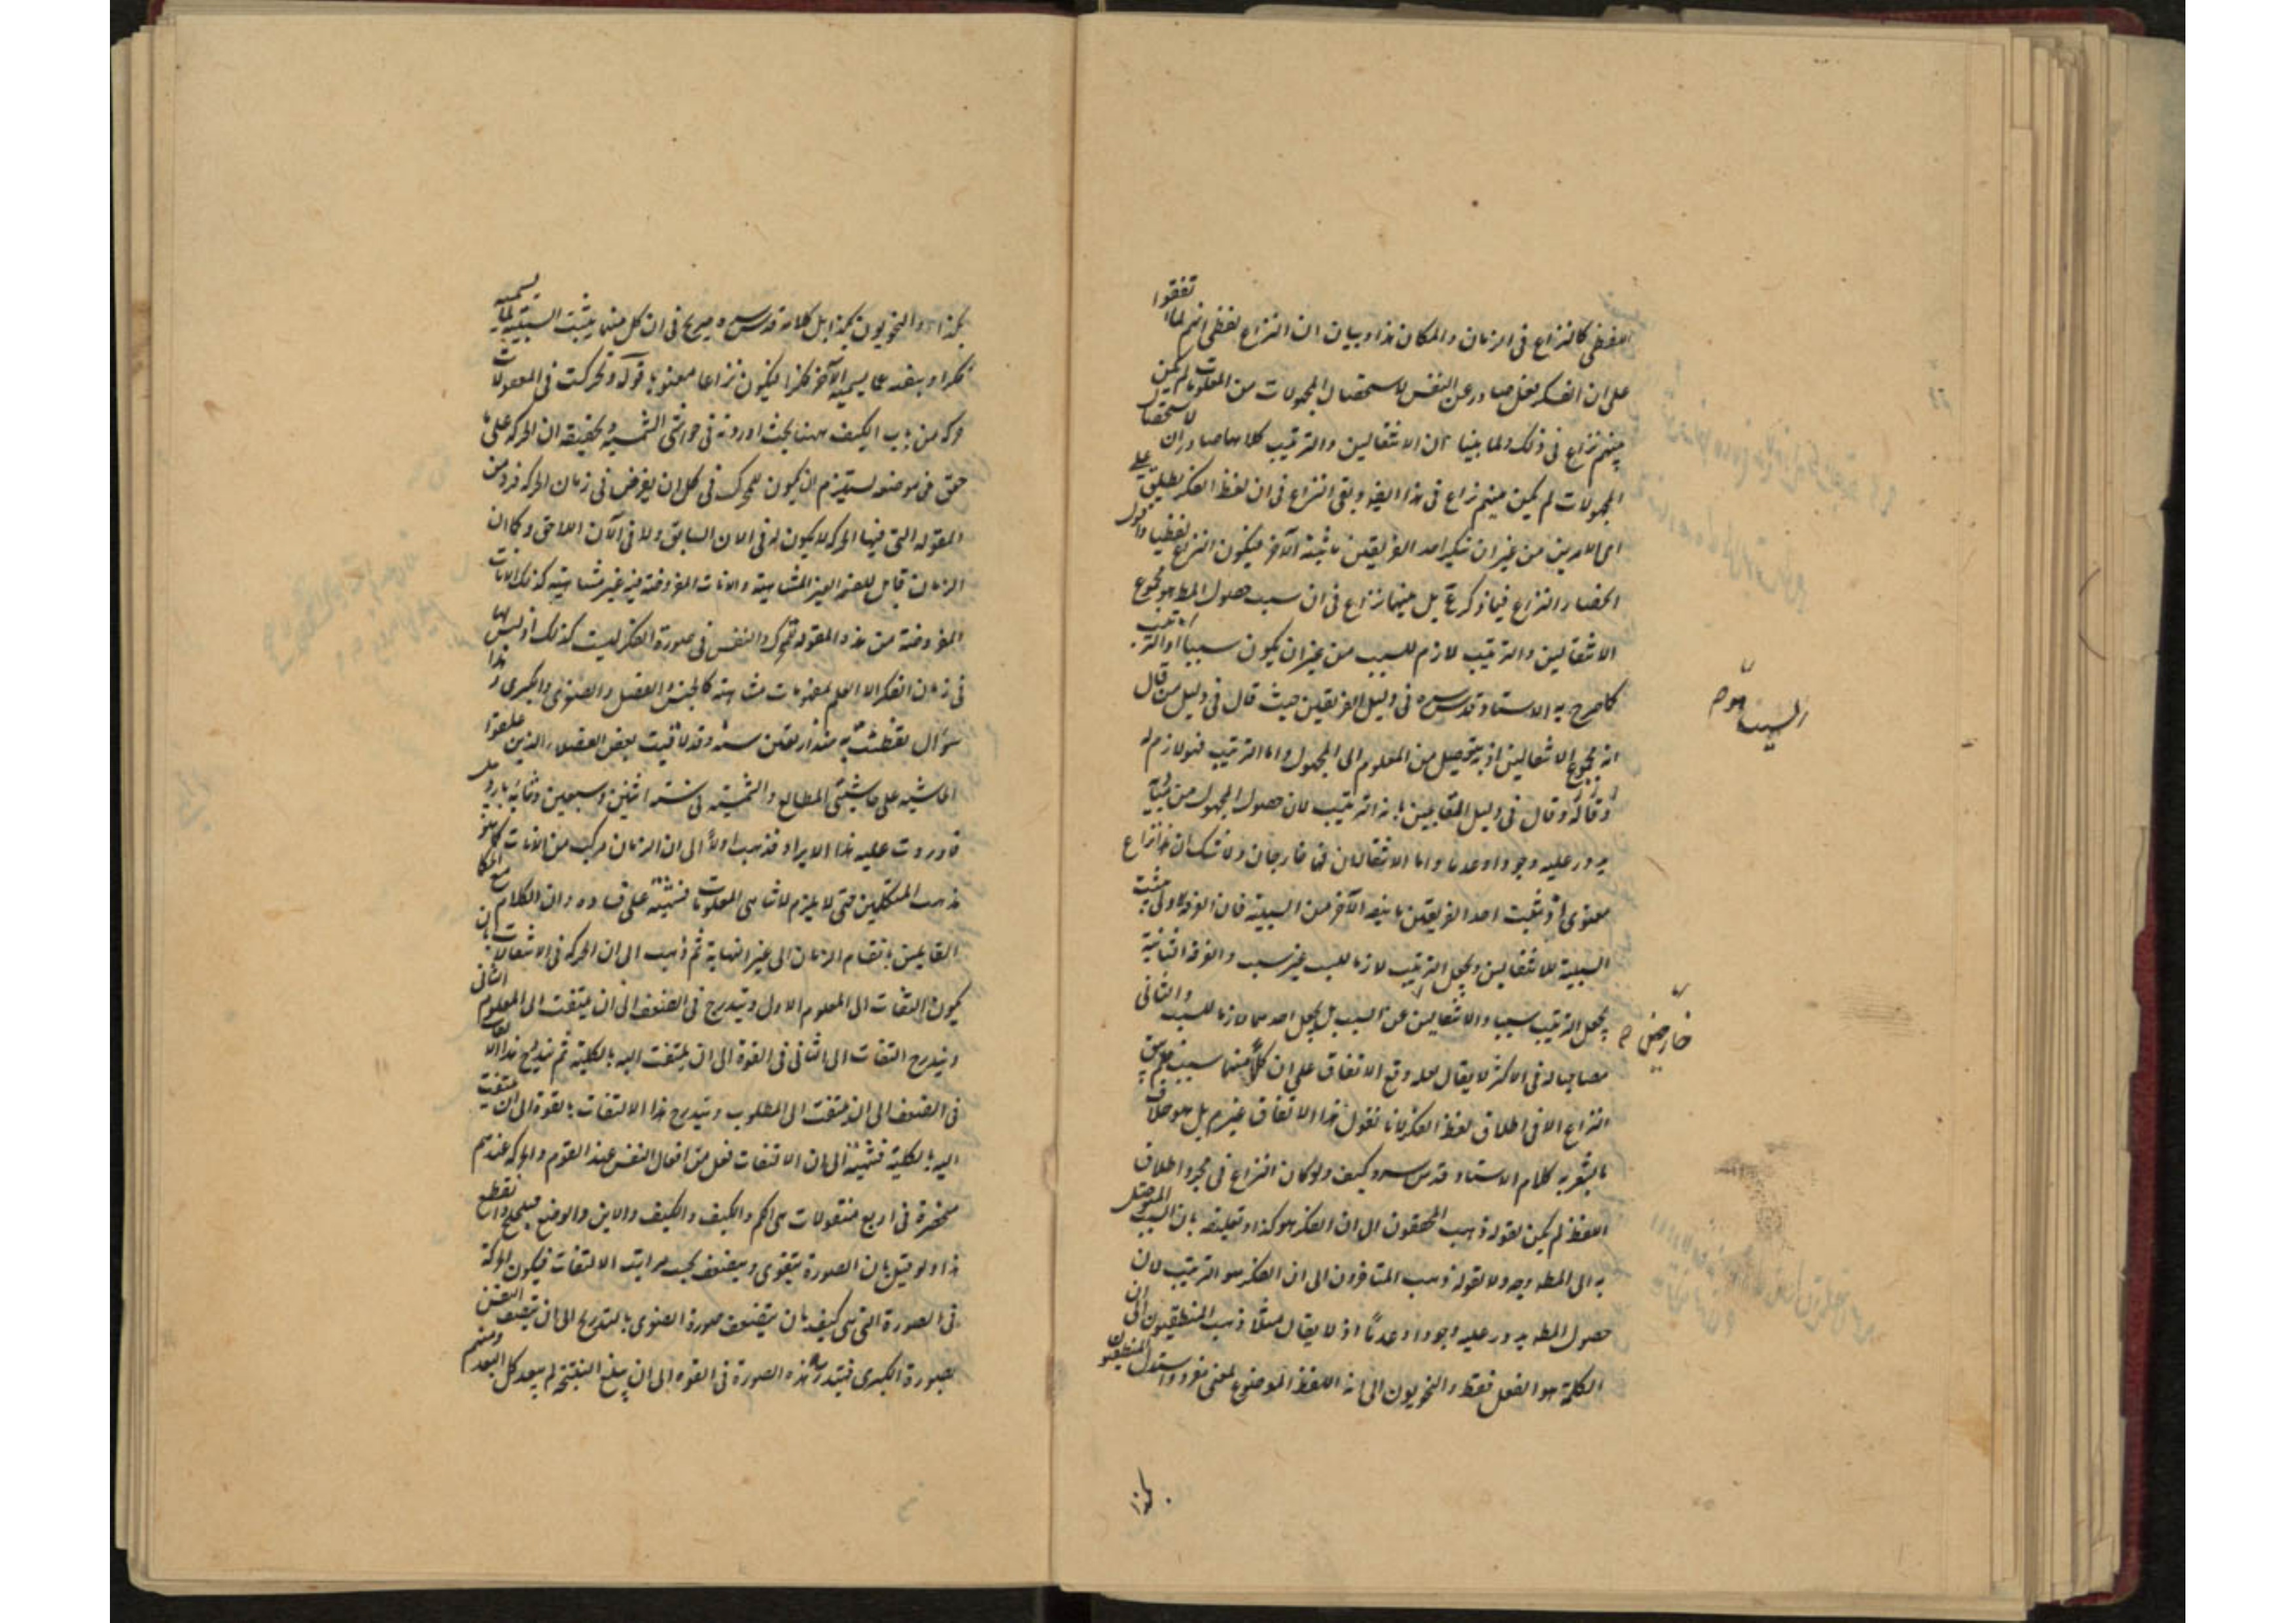 اللفظي كالنزاع في الزمان والمكان هذا وبيان ان النزاع لفظي انهم لما اتفقوا
على ان الفكر فعل صادر عن النفس لاستحصال المجهولات من المعلومات لم يكن
بينهم نزاع في ذلك ولما بينا ان الانتقالين والترتيب كلاهما صادران لاستحصال
المجهولات لم يكن بينهم نزاع في هذا ايضا وبقي النزاع في ان لفظ الفكر يطلق على
اي الامرين من غير ان ينكر احد الفريقين ما يثبته الآخر فيكون النزاع لفظيا واقول
انحصار النزاع فيما ذكر بل بينهما نزاع في ان سبب حصول المط هو مجموع
الانتقالين والترتيب لازم للسبب من غير ان يكون سببا او الترتيب
كما صرح به الاستاد قدس سره في دليل الفريقين حيث قال في دليل من قال
انه مجموع الانتقالين اذ به يتحصل من المعلوم الى المجهول واما الترتيب فهو لازم له
وقال في دليل القايلين بانه الترتيب لان حصول المجهول من مباديه
يدور عليه وجودا وعدما واما الانتقالان فخارجان ولا شك ان هذا نزاع
معنوي اذ يثبت احد الفريقين ما ينفيه الآخر من السببية فان الفرقة الاولى يثبت
السببية للانتقالين ويجعل الترتيب لازما للسبب غير سبب والفرقة الثانية
يجعل الترتيب سببا والانتقالين عن السبب بل يجعل احدهما لازما للسبب والثاني
مصاحبا له في الاكثر لا يقال لعله وقع الاتفاق على ان كلا منهما سبب فلم يبق
النزاع الا في اطلاق لفظ الفكر لانا نقول هذا الاتفاق غير م بل هو خلاف
ما يشعر به كلام الاستاد قدس سره وكيف ولو كان النزاع في مجرد اطلاق
اللفظ لم يكن لقوله ذهب المحققون الى ان الفكر هو كذا وتعليله بان السبب الموصل
به الى المط وجه ولا لقوله ذهب المتاخرون الى ان الفكر هو الترتيب لان
حصول المط يدور عليه وجودا وعدما اذ لا يقال مثلا ذهب المنطقيون الى ان
الكلمة هو الفعل فقط والنحويون الى انه اللفظ الموضوع لمعنى مفرد واستدل المنطقيون
السبب هو م
خارجين م
بكذا
بكذا والنحويون بكذا بل كلامه قدس سره صريح في ان كل منهما يثبت السببية لما يسميه
فكرا وينفيه عما يسميه الآخر فكرا فيكون نزاعا معنويا قوله وتحركت في المعقولات
حركة من باب الكيف ههنا بحث اوردته في حواشي الشمسية وتحقيقه ان الحركة على ما
حقق في موضعه يستلزم ان يكون للمتحرك في كل ان يفرض في زمان الحركة فرد من
المقولة التي فيها الحركة لا يكون له في الان السابق ولا في الآن اللاحق وكما ان
الزمان قابل للقسمة الغير المتناهية والانات المفروضة فيه غير متناهية كذلك الانات
المفروضة من هذه المقولة للمتحرك والنفس في صورة الفكر ليست كذلك اذ ليس لها
في زمان الفكر الا العلم بمعلومات متناهية كالجنس والفصل والصغرى والكبرى وهذا
سؤال تفطنت به منذ اربعين سنة وقد لاقيت بعض الفضلاء الذين علقوا
الحاشية على حاشيتي المطالع والشمسية في سنة اثنين وسبعين وثمانمائة
فاوردت عليه هذا الايراد فذهب اولا الى ان الزمان مركب من الانات كما هو
مذهب المتكلمين حتى لا يلزم لا تناهي المعلومات فنبهته على فساده وان الكلام مع الحكماء
القايلين بانقسام الزمان الى غير النهاية ثم ذهب الى ان الحركة في الالتفات بان
يكون التفات الى المعلوم الاول ويتدرج في الضعف الى ان يلتفت الى المعلوم الثاني
ويتدرج التفات الى الثاني في القوة الى ان يلتفت اليه بالكلية ثم يتدرج هذا الالتفات
في الضعف الى ان يلتفت الى المطلوب ويتدرج هذا الالتفات بالقوة الى ان يلتفت
اليه بالكلية فنبهته الى ان الالتفات فعل من افعال النفس عند القوم والحركة عندهم
منحصرة في اربع مقولات هي الكم والكيف والاين والوضع
هذا ولو قيل بان الصورة يتقوى ويضعف بحسب مراتب الالتفات فيكون الحركة
في الصورة التي هي كيف بان يضعف صورة الصغرى بالتدريج الى ان يتصف النفس
بصورة الكبرى فيتدرج هذه الصورة في القوة الى ان يبلغ النتيجة لم يبعد كل البعد ومنهم